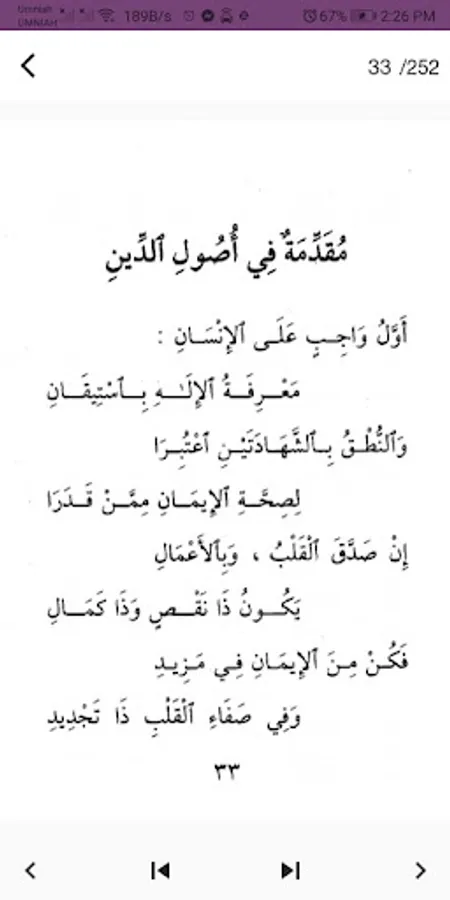 Umniah
UMNIAH
189B/s
67%
2:26 PM
33 /252
مُقَدِّمَةٌ فِي أُصُولِ ٱلدِّينِ
أَوَّلُ وَاجِبٍ عَلَى ٱلإِنْسَانِ :
مَعْرِفَةُ ٱلإِلَـٰهِ بِـٱسْتِيقَانِ
وَٱلنُّطْقُ بِـٱلشَّهَادَتَيْنِ ٱعْتُبِرَا
لِصِحَّةِ ٱلإِيمَانِ مِمَّنْ قَدَرَا
إِنْ صَدَّقَ ٱلْقَلْبُ ، وَبِٱلأَعْمَالِ
يَكُونُ ذَا نَقْصٍ وَذَا كَمَالِ
فَكُنْ مِنَ ٱلإِيمَانِ فِي مَزِيدِ
وَفِي صَفَاءِ ٱلْقَلْبِ ذَا تَجْدِيدِ
٣٣